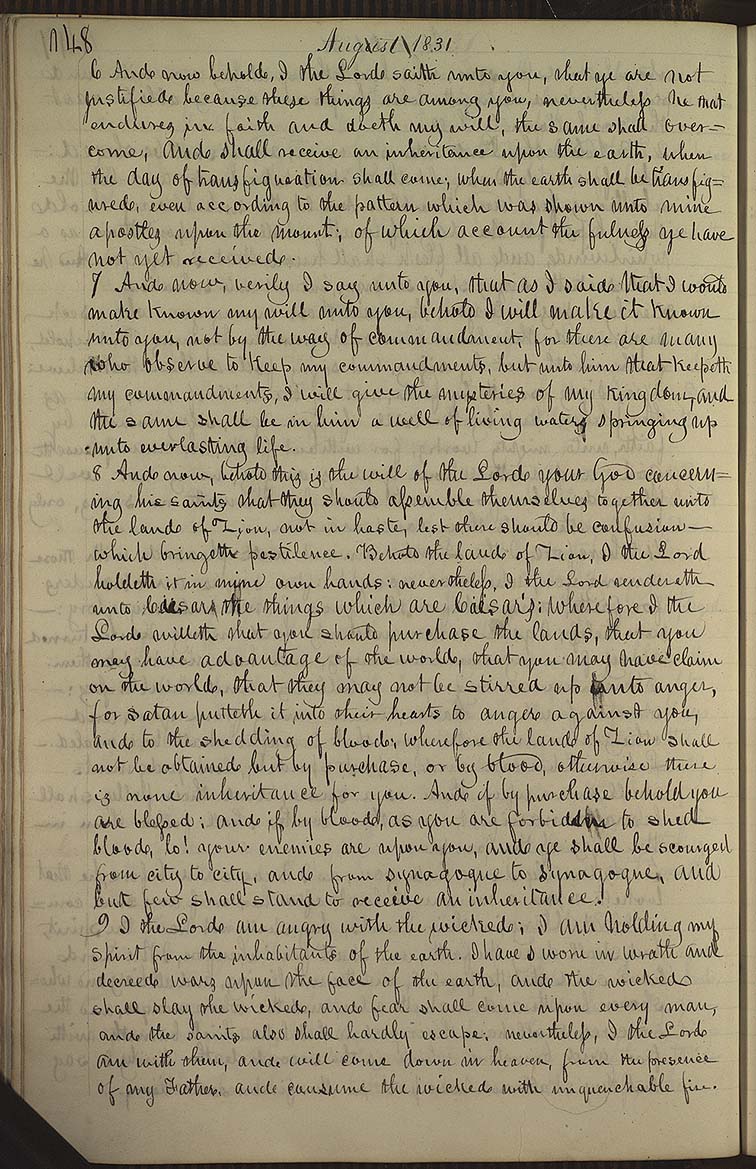 148 August 1831.
6 And now behold, I the Lord saith unto you, that ye are not
justified because these things are among you, nevertheless he that
endures in faith and doeth my will, the same shall over=
come, and shall receive an inheritance upon the earth, when
the day of transfiguration shall come; when the earth shall be transfig=
ured, even according to the pattern which was shown unto mine
apostles upon the mount; of which account the fulness ye have
not yet received.
7 And now, verily I say unto you, that as I said that I would
make known my will unto you, behold I will make it known
unto you, not by the way of commandment, for there are many
who observe to keep my commandments, but unto him that keepeth
my commandments, I will give the mysteries of my kingdom, and
the same shall be in him a well of living waters springing up
unto everlasting life.
8 And now, behold this is the will of the Lord your God concern=
ing his saints that they should assemble themselves together unto
the land of Zion, not in haste, lest there should be confusion—
which bringeth pestilence. Behold the land of Zion, I the Lord
holdeth it in mine own hands: nevertheless, I the Lord rendereth
unto Caesar the things which are Caesar's: wherefore I the
Lord willeth that you should purchase the lands, that you
may have advantage of the world, that you may have claim
on the world, that they may not be stirred up unto anger,
for satan putteth it into their hearts to anger against you,
and to the shedding of blood; wherefore the land of Zion shall
not be obtained but by purchase, or by blood, otherwise there
is none inheritance for you. And if by purchase behold you
are blessed; and if by blood, as you are forbidden to shed
blood, lo! your enemies are upon you, and ye shall be scourged
from city to city, and from synagogue to synagogue, and
but few shall stand to receive an inheritance.
9 I the Lord am angry with the wicked; I am holding my
spirit from the inhabitants of the earth. I have sworn in wrath and
decreed wars upon the face of the earth, and the wicked
shall slay the wicked, and fear shall come upon every man,
and the saints also shall hardly escape; nevertheless, I the Lord
am with them, and will come down in heaven, from the presence
of my Father, and consume the wicked with unquenchable fire.